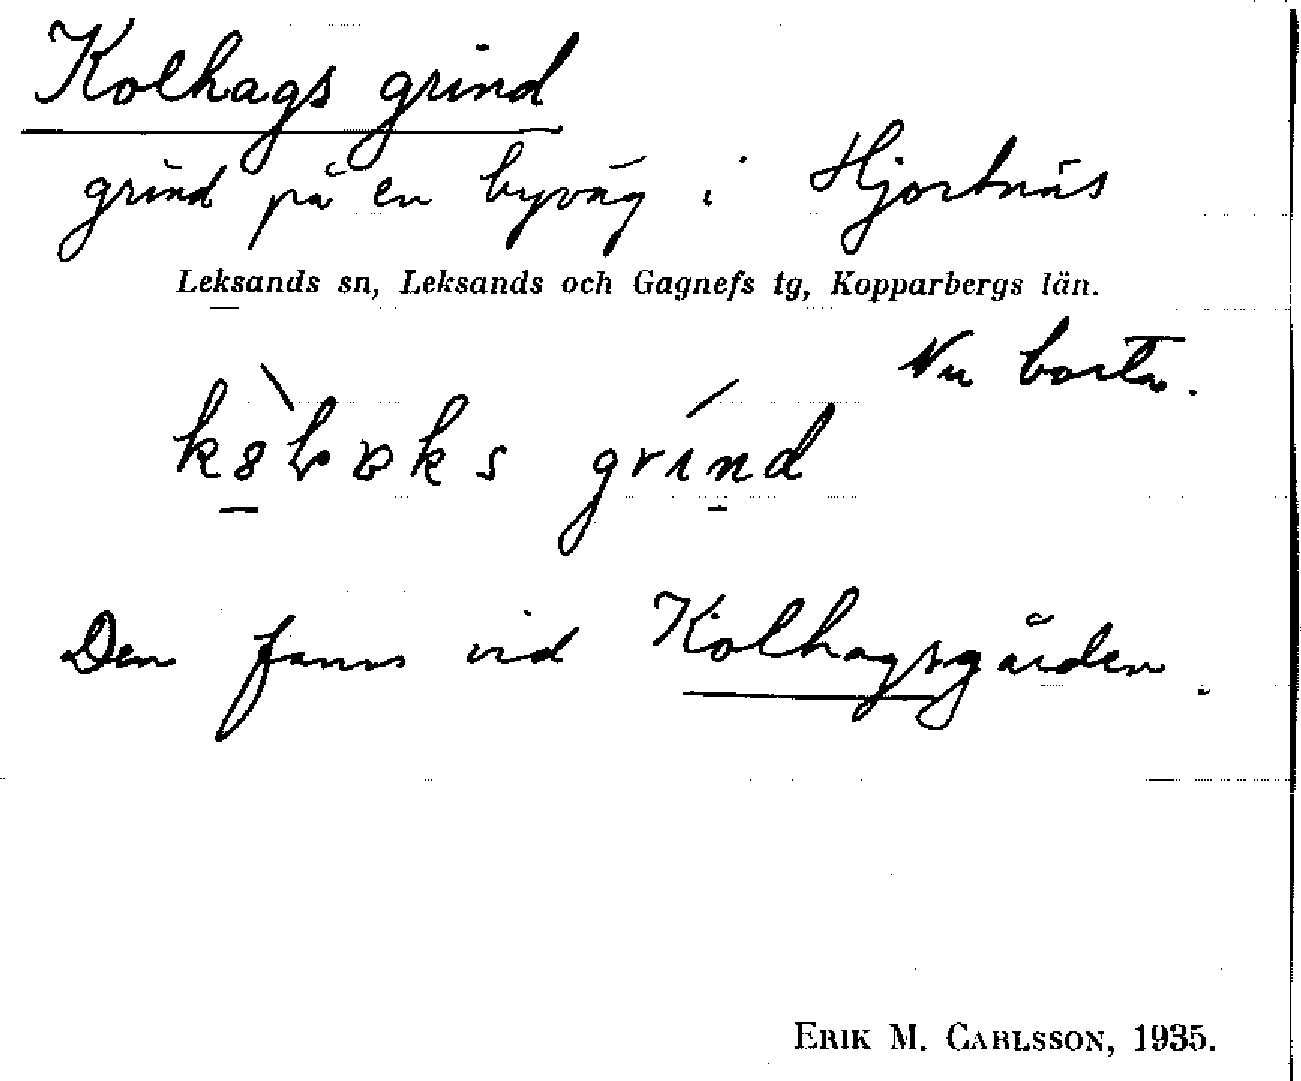 Kolhags grind
grind på en byväg i Hjortnäs
Leksands sn, Leksands och Gagnefs tg, Kopparbergs län.
Nu borta.
grínd
Den fanns vid Kolhagsgården.
ERIK M. CARLSSON, 1935.